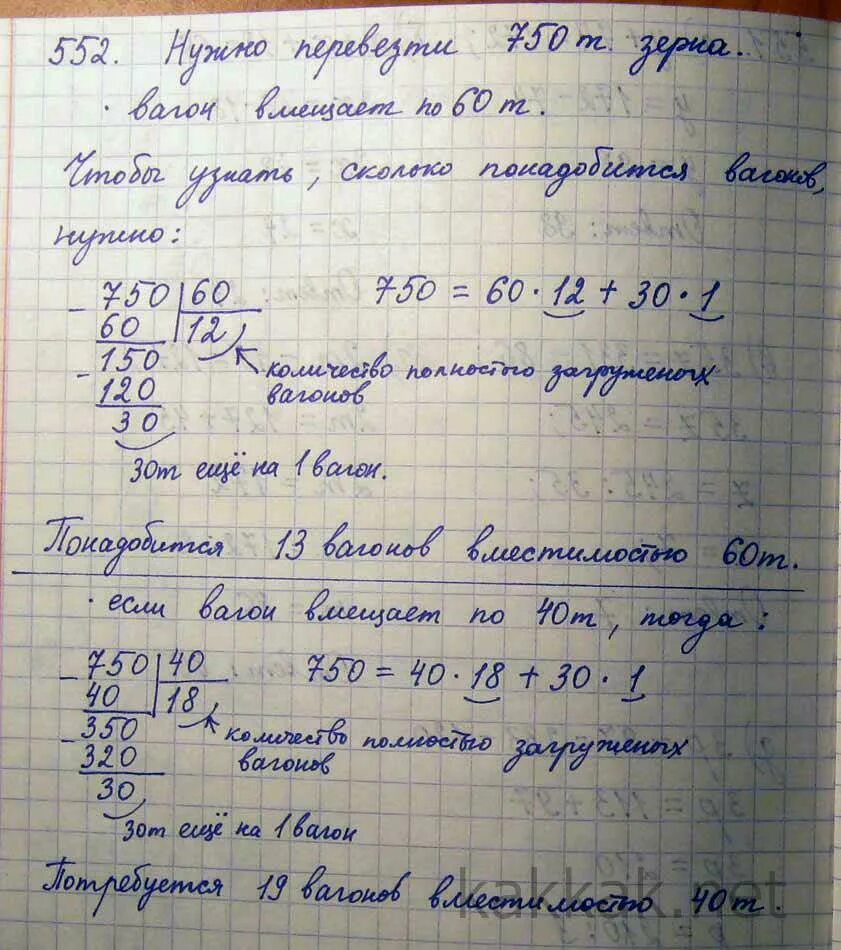 552. Нужно перевезти 750 т. зерна.
· вагон вмещает по 60 т.
Чтобы узнать, сколько понадобится вагонов,
нужно:
- 750 | 60
60 | 12
750 = 60 · 12 + 30 · 1
- 150
120
30
количество полностого загруженых
вагонов
30т ещё на 1 вагон.
Понадобится 13 вагонов вместимостью 60т.
· если вагон вмещает по 40т, тогда:
- 750 | 40
40 | 18
750 = 40 · 18 + 30 · 1
- 350
320
30
количество полностью загруженых
вагонов
30т ещё на 1 вагон
Потребуется 19 вагонов вместимостью 40т.
kakkak.net